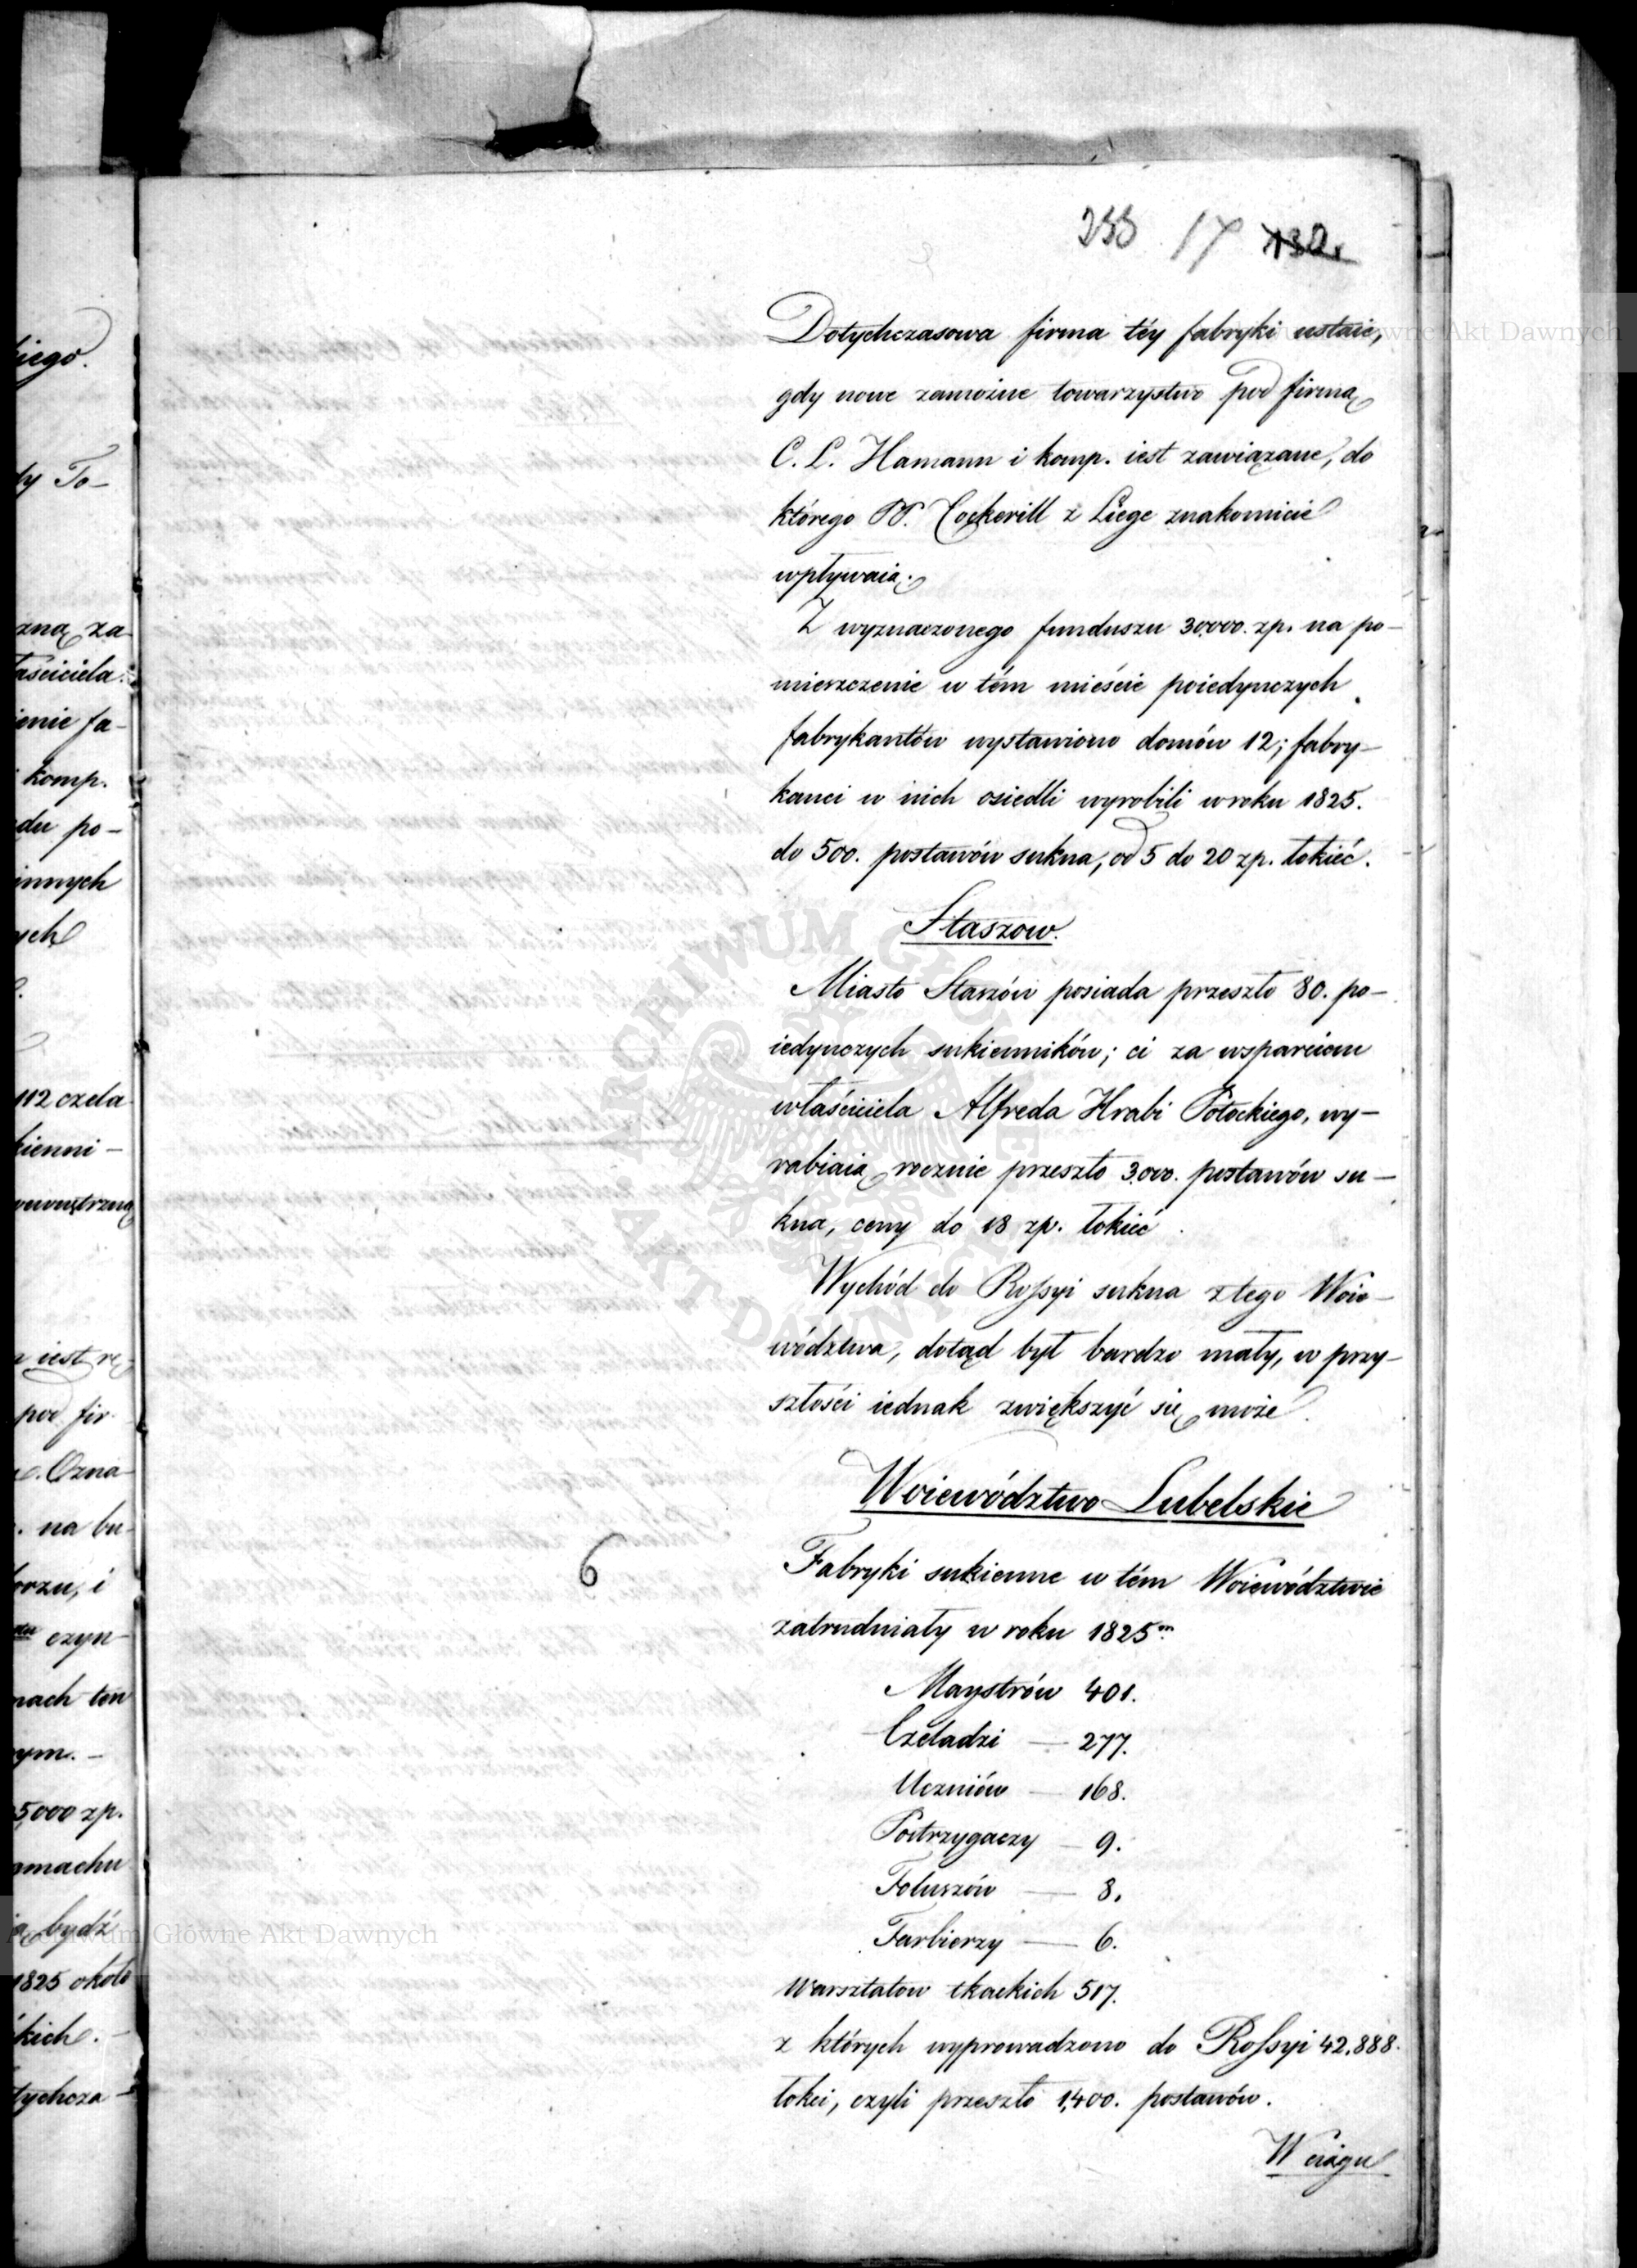 233 17 132.
Dotychczasowa firma téy fabryki ustaie,
gdy nowe zamożne towarzystwo pod firmą
C. L. Hamann i komp. iest zawiązane, do
którego PP. Cockerill z Liege znakomicie
wpływaią.
Z wyznaczonego funduszu 30,000. zp. na po-
mieszczenie w tém mieście poiedynczych
fabrykantów wystawiono domów 12; fabry-
kanci w nich osiedli wyrobili w roku 1825.
do 500. postawów sukna, od 5 do 20 zp. łokieć.
Staszow.
Miasto Staszów posiada przeszło 80. po-
iedynczych sukienników; ci za wsparciem
właściciela Alfreda Hrabi Potockiego, wy-
rabiaią rocznie przeszło 3,000. postawów su-
kna, ceny do 18 zp. łokieć.
Wychód do Rossyi sukna z tego Woie-
wództwa, dotąd był bardzo mały, w przy-
szłości iednak zwiększyć się może.
Woiewództwo Lubelskie
6
Fabryki sukienne w tém Woiewództwie
zatrudniały w roku 1825m
Maystrów 401.
Czeladzi — 277.
Uczniów — 168.
Postrzygaczy — 9.
Foluszów — 8.
Farbierzy — 6.
Warsztatow tkackich 517.
z których wyprowadzono do Rossyi 42,888.
łokci, czyli przeszło 1,400. postawów.
W ciągu
iego.
dy To-
zną za-
łaściciela
ienie fa-
komp.
du po-
innych
ych
112 czela
kienni-
wewnętrzną
iest rę
pod fir-
Ozna-
na bu-
orzu, i
czyn-
mach ten
ym. -
5,000 zp.
gmachu
bydź
1825 około
kich. -
tychcza-
Archiwum Główne Akt Dawnych
ARCHIWUM GŁÓWNE
AKT DAWNYCH
Archiwum Główne Akt Dawnych